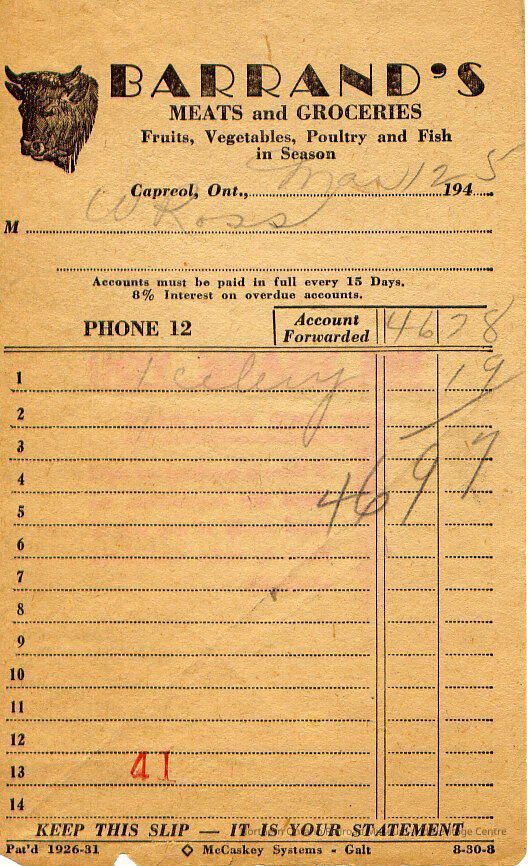 BARRAND'S
MEATS and GROCERIES
Fruits, Vegetables, Poultry and Fish
in Season
Capreol, Ont., Mar 12 194 5
M W Ross
Accounts must be paid in full every 15 Days.
8% Interest on overdue accounts.
PHONE 12 Account Forwarded 46 78
1 1 celery 19
2
3
4 46 97
5
6
7
8
9
10
11
12
13 41
14
KEEP THIS SLIP — IT IS YOUR STATEMENT
Pat'd 1926-31 McCaskey Systems - Galt 8-30-8